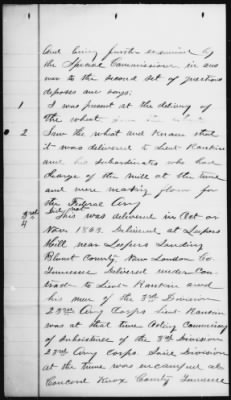 And being further examined by
the Special Commissioner in ans
wer to the second set of questions
deposes and says:
1 I was present at the delivery of
the wheat
2 Saw the wheat and know that
it was delivered to Lieut Rankin
and his subordinates who had
charge of the mill at the time
and were making flour for
the Federal Army
3rd & 4 This was delivered in Oct or
Nov 1863. Delivered at Leepers
Mill near Leepers Landing
Blount County New London Co.
Tennessee Delivered under Con
tract to Lieut Rankin and
his men of the 3rd Division
23rd Army Corps Lieut Rankin
was at that time Acting Commissary
of Subsistence of the 3rd Division
23rd Army Corps. Said Division
at the time was encamped at
Concord Knox County Tennessee